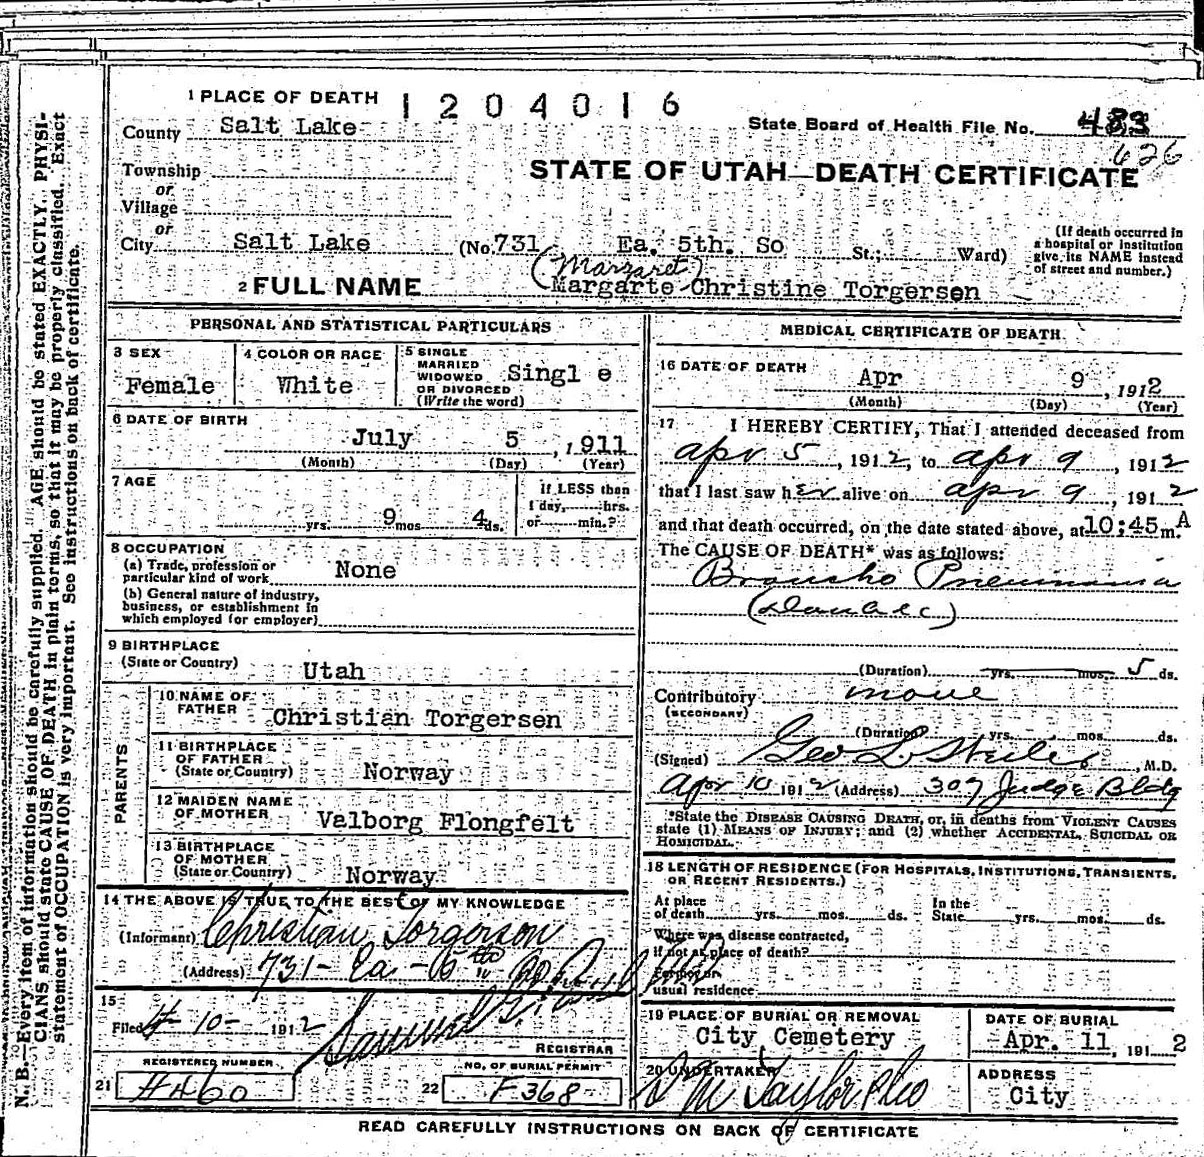 1 PLACE OF DEATH 1204016
County Salt Lake
State Board of Health File No. 483
626
Township
or
Village
or
STATE OF UTAH—DEATH CERTIFICATE
City Salt Lake (No. 731 Ea. 5th. So St.; Ward)
(If death occurred in
a hospital or institution
give its NAME instead
of street and number.)
(Margaret)
2 FULL NAME Margarte Christine Torgersen
PERSONAL AND STATISTICAL PARTICULARS
3 SEX
Female
4 COLOR OR RACE
White
5 SINGLE
MARRIED
WIDOWED
OR DIVORCED
(Write the word)
Singl e
6 DATE OF BIRTH
July 5, 1911
(Month) (Day) (Year)
7 AGE
yrs. 9 mos. 4 ds.
If LESS than
1 day, hrs.
or min.?
8 OCCUPATION
(a) Trade, profession or
particular kind of work None
(b) General nature of industry,
business, or establishment in
which employed (or employer)
9 BIRTHPLACE
(State or Country) Utah
PARENTS
10 NAME OF
FATHER Christian Torgersen
11 BIRTHPLACE
OF FATHER
(State or Country) Norway
12 MAIDEN NAME
OF MOTHER Valborg Flongfelt
13 BIRTHPLACE
OF MOTHER
(State or Country) Norway
14 THE ABOVE IS TRUE TO THE BEST OF MY KNOWLEDGE
(Informant) Christian Torgerson
(Address) 731- Ea. 5th
15
Filed 4-10- 1912 Samuel G.
REGISTRAR
REGISTERED NUMBER
21 #460
NO. OF BURIAL PERMIT
22 F368
MEDICAL CERTIFICATE OF DEATH
16 DATE OF DEATH
Apr 9, 1912
(Month) (Day) (Year)
17 I HEREBY CERTIFY, That I attended deceased from
Apr 5, 1912, to Apr 9, 1912
that I last saw her alive on Apr 9, 1912
and that death occurred, on the date stated above, at 10:45 m. A
The CAUSE OF DEATH* was as follows:
Broncho Pneumonia
(Duration) yrs. mos. 5 ds.
Contributory none
(SECONDARY)
(Duration) yrs. mos. ds.
(Signed) Geo L. M.D.
Apr 10 1912 (Address) 307 Judge Bldg
*State the DISEASE CAUSING DEATH, or, in deaths from VIOLENT CAUSES
state (1) MEANS OF INJURY; and (2) whether ACCIDENTAL, SUICIDAL OR
HOMICIDAL.
18 LENGTH OF RESIDENCE (FOR HOSPITALS, INSTITUTIONS, TRANSIENTS,
OR RECENT RESIDENTS.)
At place
of death yrs. mos. ds.
In the
State yrs. mos. ds.
Where was disease contracted,
if not at place of death?
Former or
usual residence
19 PLACE OF BURIAL OR REMOVAL
City Cemetery
DATE OF BURIAL
Apr. 11, 1912
20 UNDERTAKER
S M Taylor & Co
ADDRESS
City
READ CAREFULLY INSTRUCTIONS ON BACK OF CERTIFICATE
N. B.—Every item of information should be carefully supplied. AGE should be stated EXACTLY. PHYSI-
CIANS should state CAUSE OF DEATH in plain terms, so that it may be properly classified. Exact
statement of OCCUPATION is very important. See instructions on back of certificate.